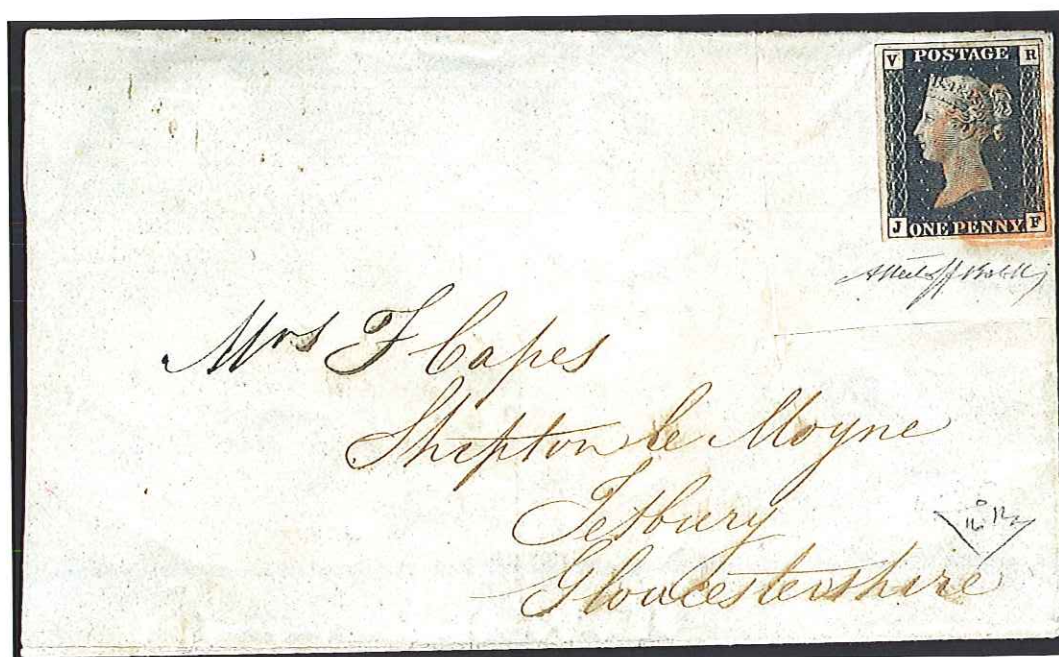 V POSTAGE R
J ONE PENNY F
Mrs F Capes
Shepton le Moyne
Tetbury
Gloucestershire